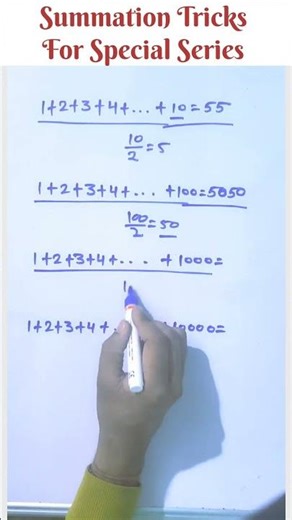 Summation Tricks
For Special Series
1+2+3+4+...+10=55
10/2=5
1+2+3+4+... +100=5050
100/2=50
1+2+3+4+... +1000=
1
1+2+3+4+. 10000=